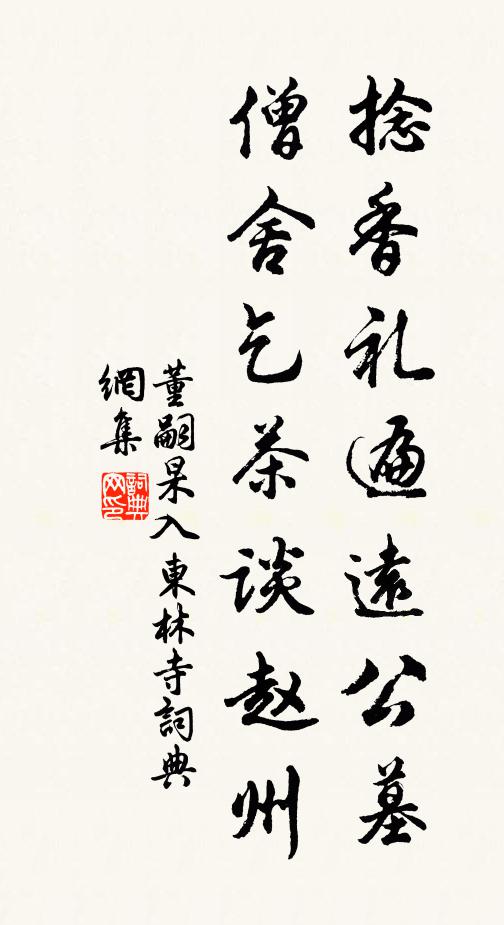 捻香礼遍遠公墓
僧舍乞茶谈赵州
董嗣杲入東林寺詞典
網集
詞典
网印